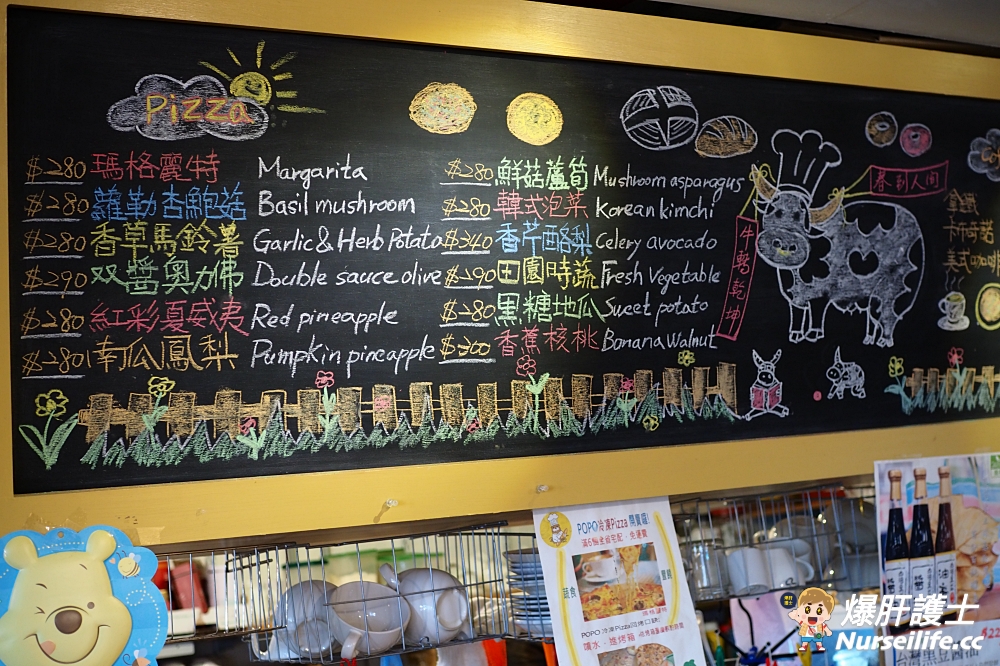 Pizza
$280 瑪格麗特 Margarita
$280 蘿勒杏鮑菇 Basil mushroom
$280 香草馬鈴薯 Garlic & Herb Potato
$290 双醬奧力佛 Double sauce olive
$280 紅彩夏威夷 Red pineapple
$280 南瓜鳳梨 Pumpkin pineapple
$280 鮮菇蘆筍 Mushroom asparagus
$280 韓式泡菜 Korean kimchi
$340 香芹酪梨 Celery avocado
$290 田園時蔬 Fresh Vegetable
$280 黑糖地瓜 Sweet potato
$300 香蕉核桃 Banana Walnut
牛轉乾坤
春到人間
拿鐵
卡布奇諾
美式
POPO冷凍Pizza
滿6組宅配，免運費
蔬食
POPO 冷凍Pizza回烤口訣
噴水、進烤箱
爆肝護士
Nurselife.cc